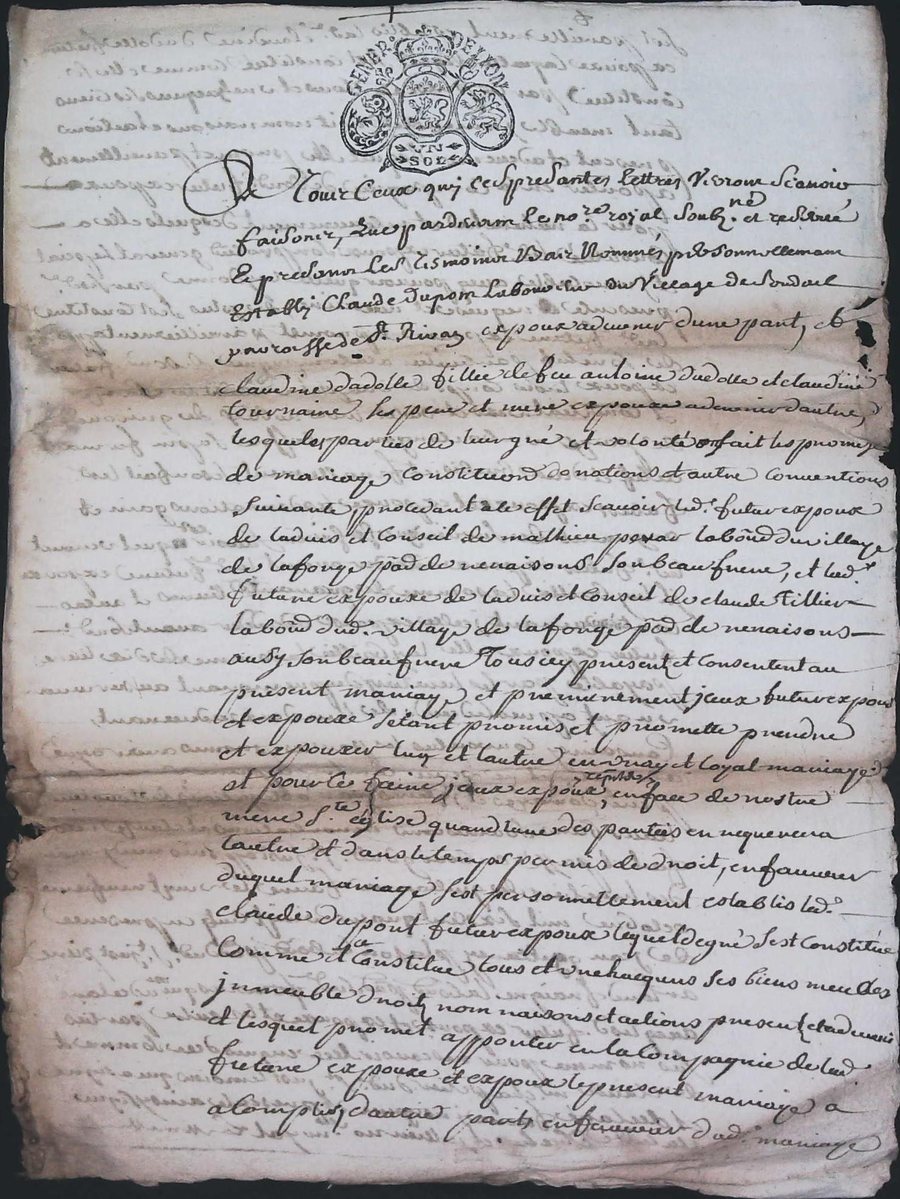 GENER. DE LYON
UN
SOL
A Tour Ceux quj ces presantes lettres Verront Scavoir
faisonts, que pardevant le no.re rojal soubz.né et reservé
Et presants Les Tesmoins Bas Nommés, personnellemant
Establi Claude dupont Laboureur du Village de
parroisse de St. Rivan expoux advenir d'une part, et
claudine dadolle fillie de feu antoine dudolle et claudine
tournaire ses pere et mere expouxe advenir d'autre,
lesqueles parties de leur gré et volonté ont fait les promesses
de mariage Constitution donations et autre conventions
suivante procedant a le effet Scavoir led.t futur expoux
de ladvis et Conseil de mathieu perar labour du village
de la forge par de renaisons son beau frere, et lad.e
future expouxe de ladvis et Conseil de claude Tillier
labour dud. village de la forge par de renaisons
ausy son beau frere Tous icy present et consentent au
present mariage et premierement jceux futur expoux
et expouxe se sont promis et promette prendre
et expouxer luy et lautre en vray et loyal mariage
et pour ce faire jceux expoux en face de nostre
mere S.te église quand lune des parties en requerera
lautre et dans le temps permis de droit, en faveur
duquel mariage sest personnellement establis led.
claude dupont futur expoux lequel de gré sest Constitué
Comme il se Constitue tous et un chacquns ses biens meubles
jnmeuble droits nom raisons et actions present et advenir
et lesquel promet apporter en la Compagnie de lad
future expouxe et expoux le present mariage a
acomplir, d'autre part en faveur dud. mariage